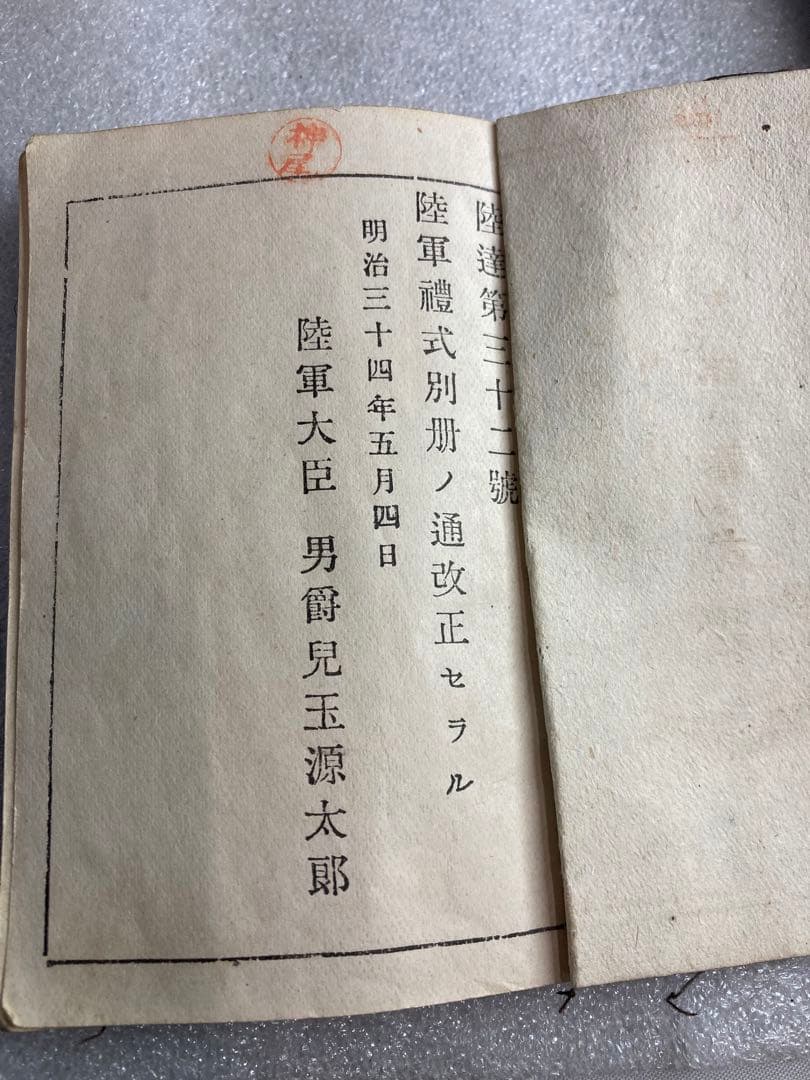 神尾
陸達第三十二號
陸軍禮式別册ノ通改正セラル
明治三十四年五月四日
陸軍大臣 男爵兒玉源太郞